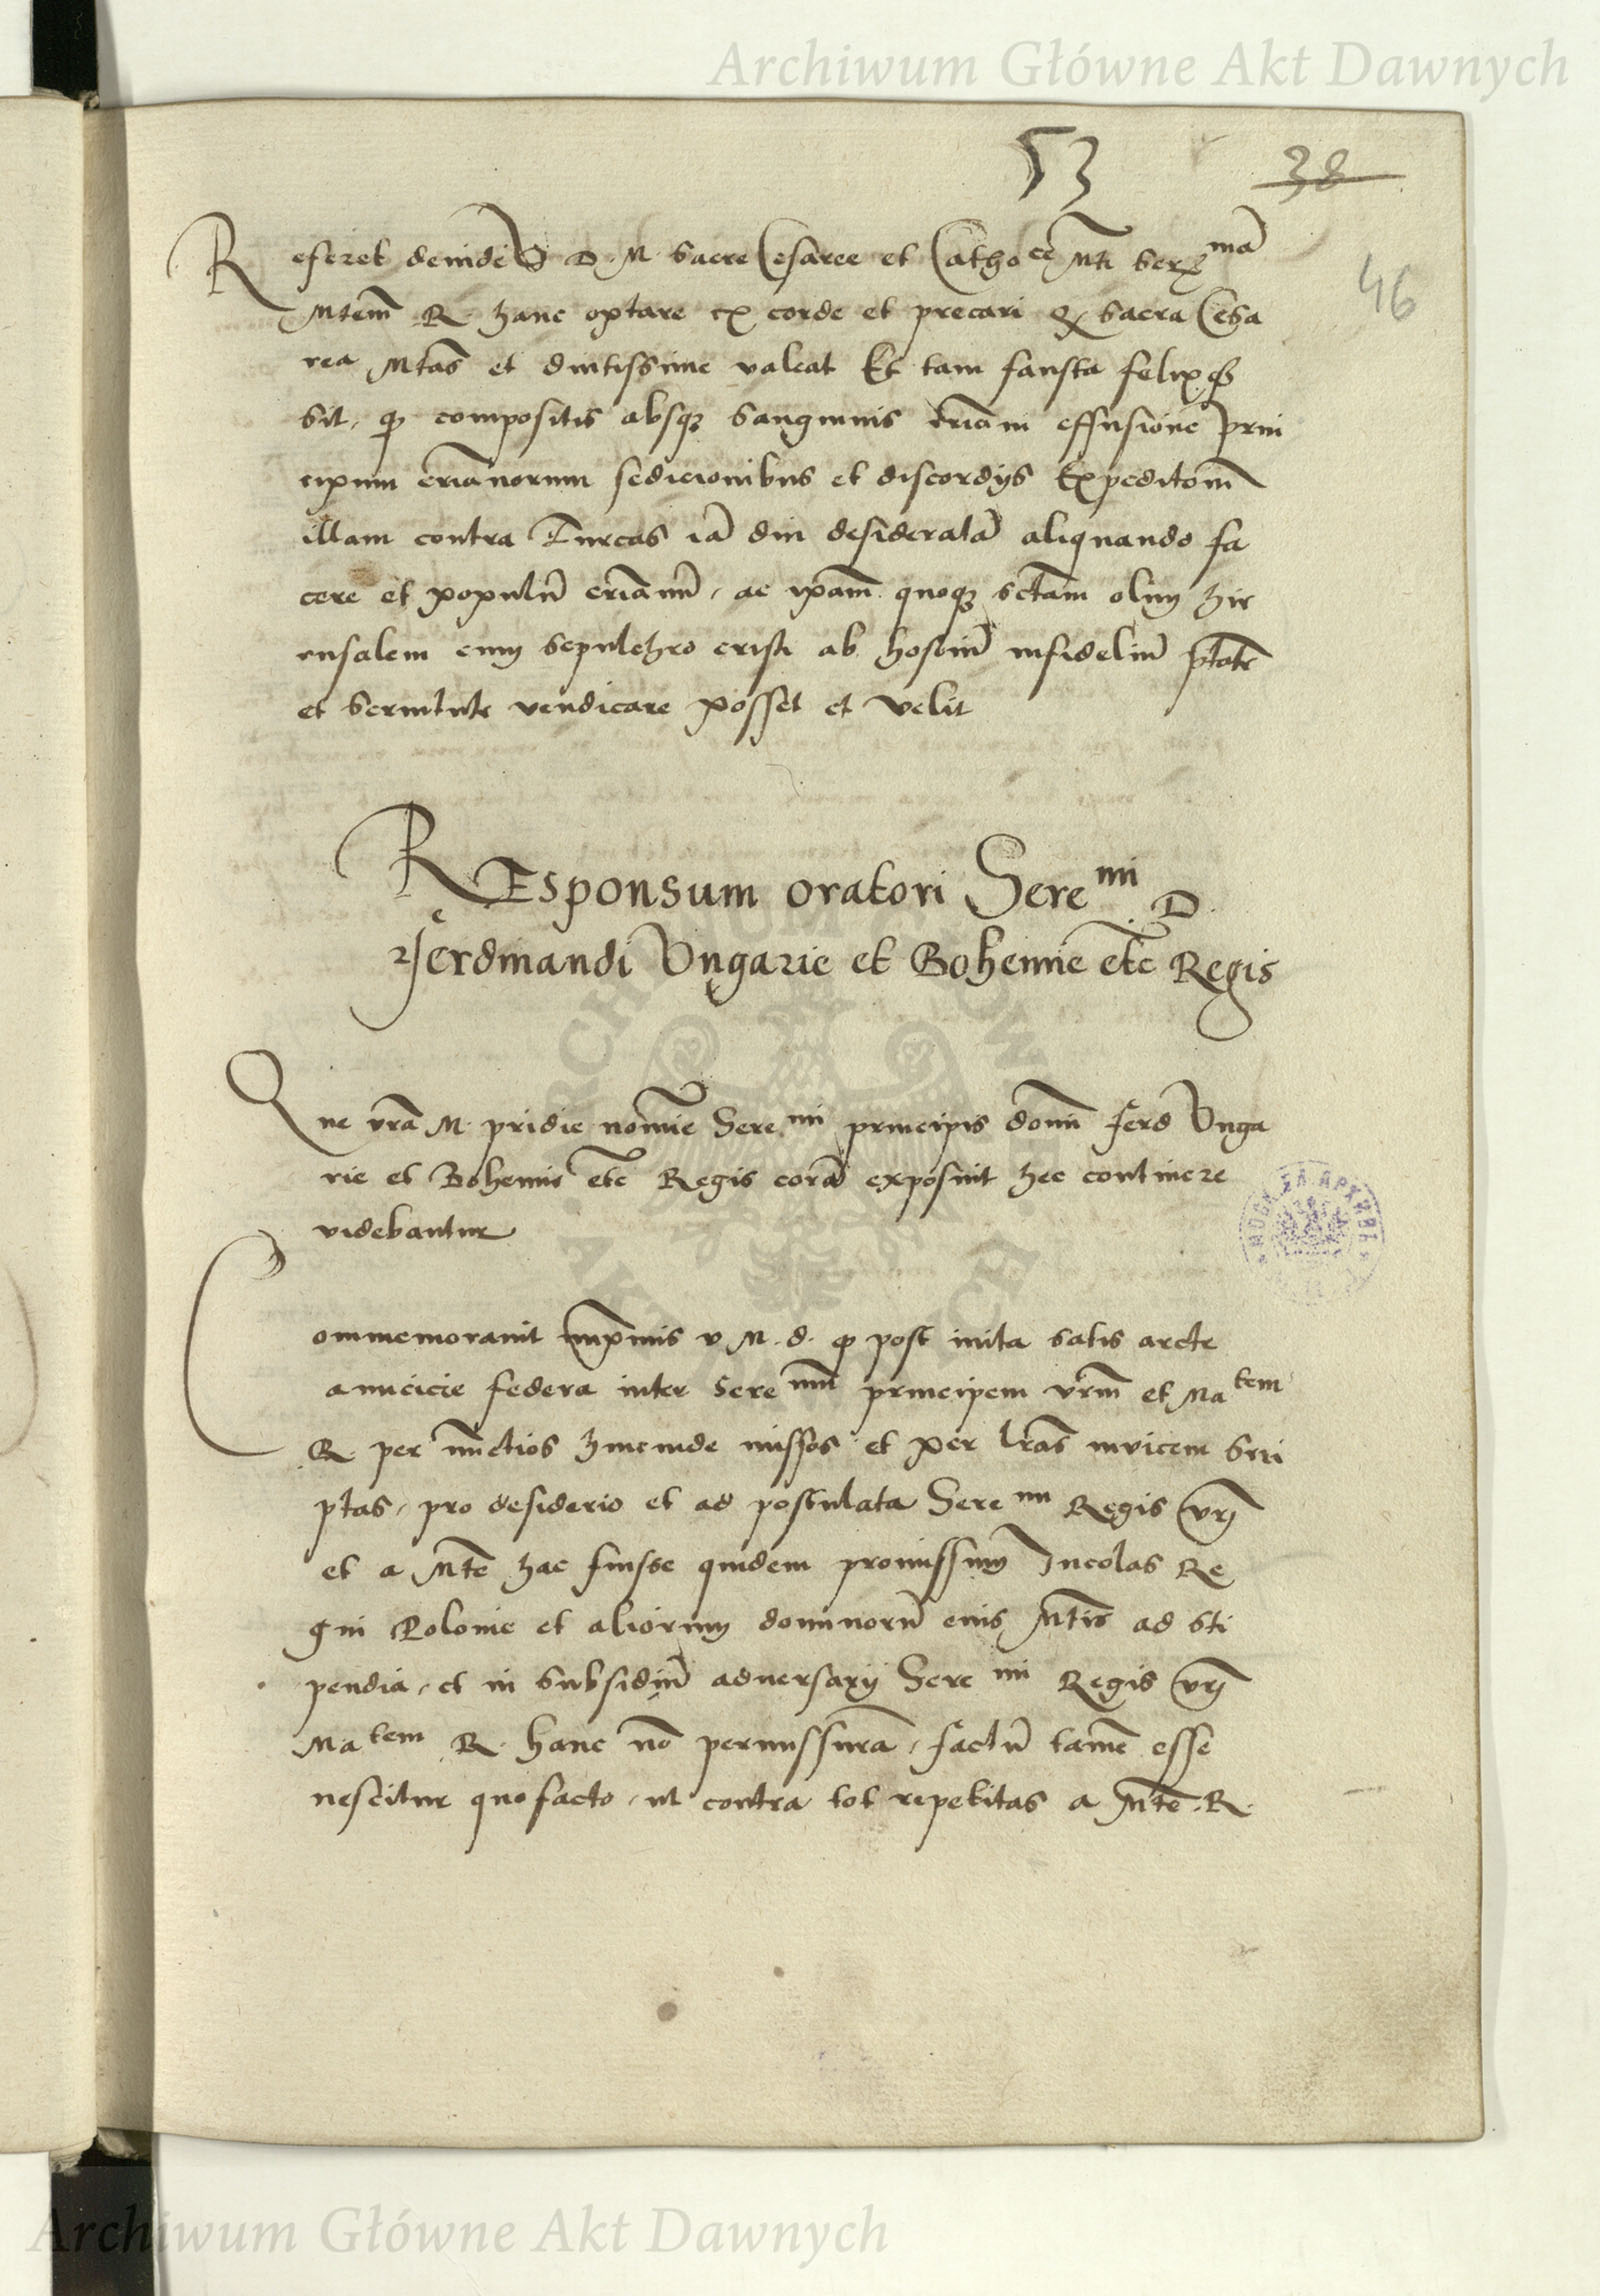 Archiwum Główne Akt Dawnych
53
38
46
Referet deinde D. M. Sacre Cesaree et Cathoce Mti Serma
Mtem R. hanc optare ex corde et precari q Sacra Cesa
rea Mtas et diutissime valeat Et tam fausta felixq
sit, q compositis absq sanguinis criani effusione prin
cipum crianorum sedicionibus et discordijs Expeditom
illam contra Turcas ia diu desiderata aliquando fa
cere et populu crianu, ac ipam quoq sctam olim hie
rusalem cum sepulchro cristi ab hostiu infideliu ptate
et servitute vendicare posset et velit
REsponsum oratori Seremi D.
Ferdinandi Ungarie et Bohemie etc Regis
Que vra M. pridie nomine Seremi principis domi ferd Unga
rie et Bohemie etc Regis cora exposuit hec continere
videbantur
Commemoravit inprimis v M. d. q post inita satis arcte
amicicie federa inter Seremum principem vrm et Matem
R. per nuctios hincinde missos et per lras invicem scri
ptas, pro desiderio et ad postulata Seremi Regis vri
et a Mte hac fuisse quidem promissum Incolas Re
gni Polonie et aliorum dominoru eius Mtis ad sti
pendia, et in subsidiu adversarij Seremi Regis vri
Matem R. hanc no permissura, factu tame esse
nescitur quo facto, ut contra tot repetitas a Mte R.
Archiwum Główne Akt Dawnych